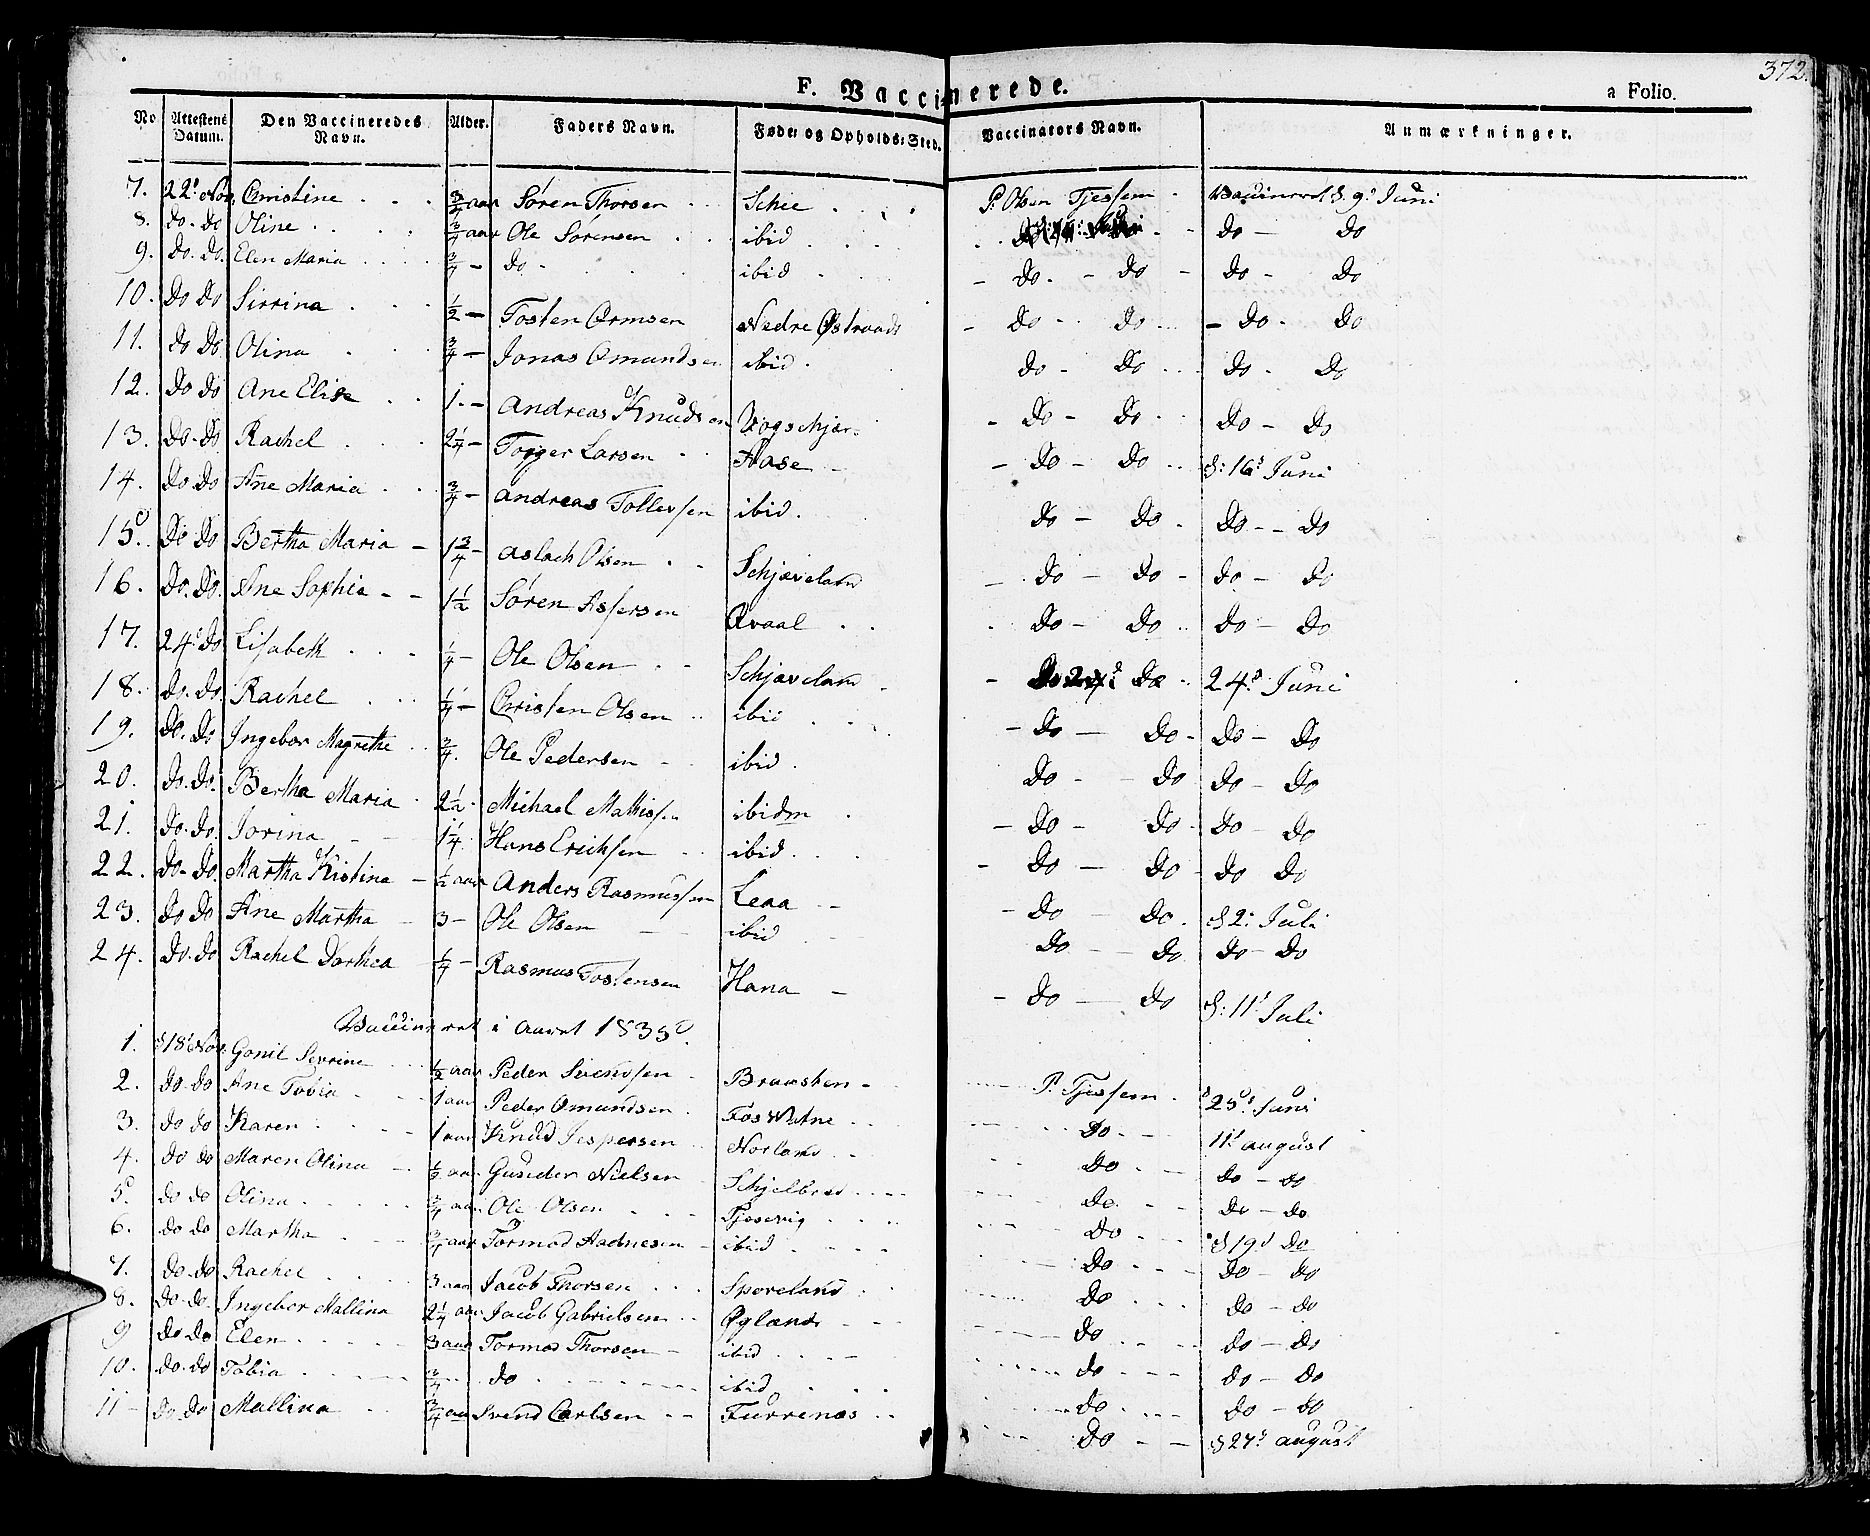 372.
F. Vaccinerede. a Folio.
No Attestens Datum. Den Vaccineredes Navn. Alder. Faders Navn. Føde: og Opholds: Sted. Vaccinators Navn. Anmærkninger.
7. 22d Nov. Christine . . . 3/4 aar Søren Thorsen . . Schie . . . P. Olsen Tjessem - Vaccineret d. 9d Juni
8. do - do Oline . . . 3/4 aar Ole Sørensen . . ibid . . . do - do
9. do. do. Elen Maria . . . 3/4 - do - ibid . - do. - do - do - do
10. do do Sirrina . . . 1/2 - Tosten Ormsen Nedre Østraadt - do - do . . - do - do
11. do do Olina . . . 3/4 - Jonas Omundsen ibid . do - do . . do - do
12. do do Ane Elise . . 1. - Andreas Knudsen - do - do . . do - do
13. do - do Rachel . . . 2 1/4 - Torger Larsen . . Aase - - do - do . . d: 16d Juni
14. do do Ane Maria . . 3/4 - Andreas Tollevsen ibid. do - do . do - - do
15. do do Bertha Maria - 1 3/4 - Aslach Olsen . - Schjæveland - do - do - do - do
16. do. do. Ane Sophia - - 1 1/2 Søren Asersen Qvaal . . . do - do . . do - do
17. 24d do Lisabeth . . . 1/4 - Ole Olsen . - Schjæveland . - do - 24d Juni
18. do. do. Rachel . . . 1/4 - Christen Olsen . . ibid . . . - do - do - do - do
19. do. do Ingebor Magrethe . . 3/4. Ole Pedersen - ibid . do - - do do - do
20. do. do. Bertha Maria . 2 1/2 . Michael Mathissen ibidm . - do - do - do - do
21. do. do. Jorina - - 1 1/4. Hans Erichsen . . ibid . . . - do - do do do
22. do. do. Martha Kistine - 1/2 aar Anders Rasmussen Leaa - - - do - do . d 2d Juli
23. do do Ane Martha - 3 - Ole Olsen - - ibid . - do - do do - do
24. do. do Rachel Dorthea 1/4 - Rasmus Tostensen Hana - - do - do d: 11d Juli
Vaccineret i Aaret 1835.
1. d 18d Nov. Gonil Sevrine . . 1/2 aar Peder Svendsen - Brausten - . . . P. Tjessem . d 25d Juni
2. do - do Ane Tobia - - . 1 aar Peder Omundsen . Fos Watne . . . . . do. - - 11d August
3. do do Karen . . . . 1 aar Knud Jespersen . . Norland . . . . do . - - do - do
4. do do Maren Olina - . 1/2 aar Guneder Nielsen . Schjelbred . . . . . . . do . . - do - do
5. do do Olina . . . . . 3/4 aar Ole Olsen . . . Tjosevig . . . . . . . do . . . d 19d do
6. do do Martha . . . 3/4 aar Tormod Aadnesen - ibid . . . . do . . . do - do
7. do. do Rachel . . . . 3 aar Jacob Thorsen . . . Sporeland . . . . . do . . . do - do
8. do - do. Ingebor Mallina 2 1/4 aar Jacob Gabrielsen . . Øgland . . . . . . do . . . do - do
9 do do Elen . . . . 3 aar Tormod Thorsen - ibid . . . . . . . do . . . do - do
10. do. do Tobia . . . . 3/4 . . . do . . . . ibid . . . . . . do . . . do - do
11 - do do Mallina . . 3/4 aar Svend Carlsen - - Furrenæs . . . . . do - - d 27d August